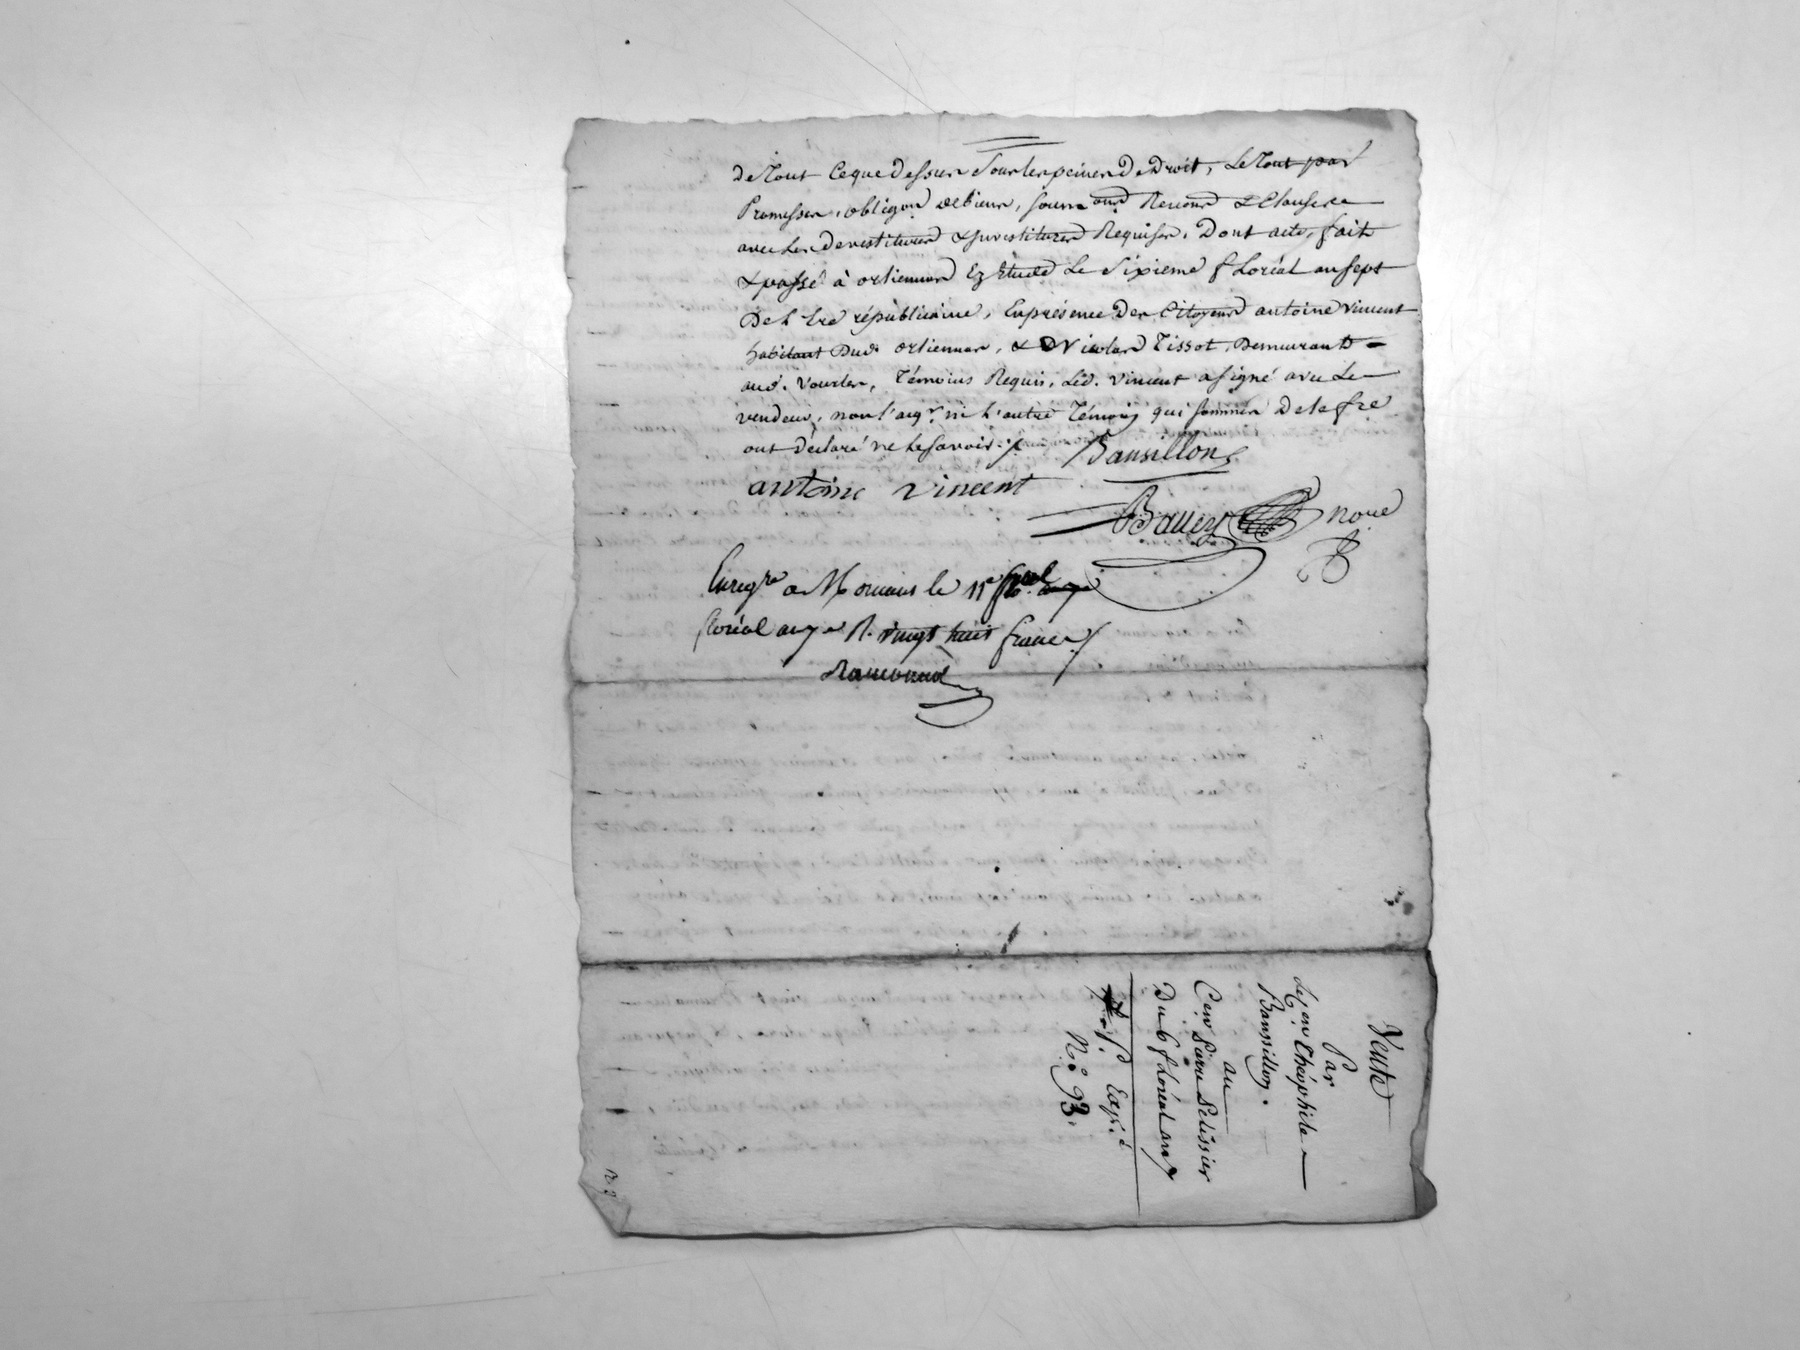 de Tout ce que dessus sous les peines de Droit, le Tout par
Promesses, obligon de biens, soumons Renons & Clauses
avec les devestitures & investitures Requises. Dont acte, fait
& passé à orliennas Ez Etude le sixieme floréal an sept
De l'Ere républicaine, En présence des Citoyens antoine vincent
habitant Dud. orliennas, & Nicolas Tissot, Demeurant
aud. Vourles, Témoins Requis, led. vincent a signé avec le
vendeur, non l'aqr. ni l'autre Témoin qui sommés de le fre
ont déclaré ne le savoir ./.
Bansillon
antoine vincent
noue
Enregre a Mornant le 11e
floréal an 7e R. vingt huit francs
Vente
Par
Le Cen Théophile
Bansillon.
au
Cen Pierre Pelissier
Du 6 floréal an 7
Expé
N.o 93.